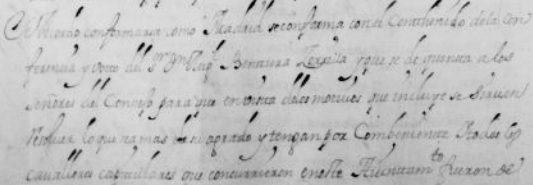 Acordo conformarse como Madrid se conforma con el Conthenido de la Con
ferencia y Voto del Sr Dn Benttura y que se de quenta a los
señores del Consejo para que en vista de los motivos que incluye se sirvan
Resolver lo que sea mas de su agrado y tengan por Combeniente Todos los
cavalleros capitulares que concurrieron en este Aiuntamto fueron de